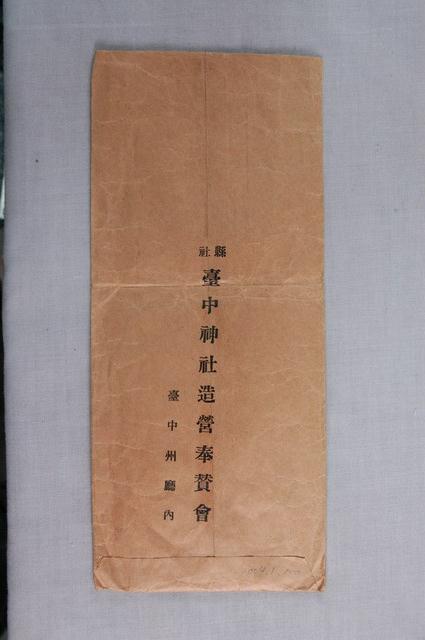 縣社
臺中神社造營奉贊會
臺中州廳內